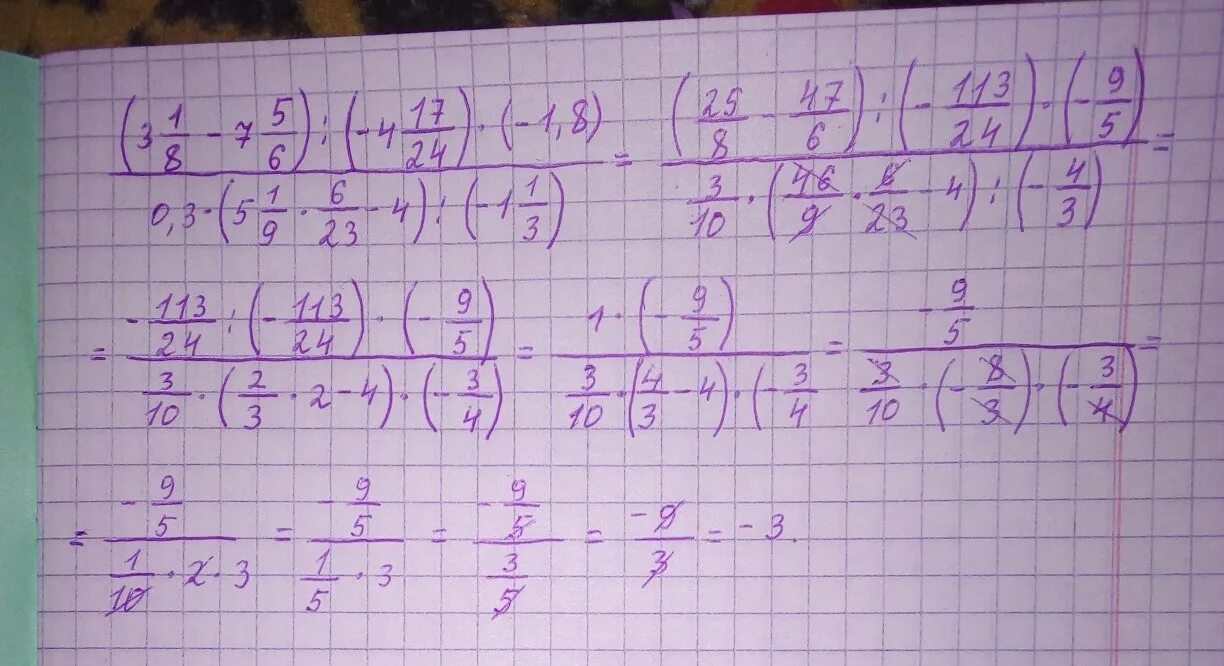 (3 1/8 - 7 5/6) : (-4 17/24) · (-1,8) / 0,3 · (5 1/9 · 6/23 - 4) : (-1 1/3) = (25/8 - 47/6) : (-113/24) · (-9/5) / 3/10 · (46/9 · 6/23 - 4) : (-4/3) =
= -113/24 : (-113/24) · (-9/5) / 3/10 · (2/3 · 2 - 4) · (-3/4) = 1 · (-9/5) / 3/10 · (4/3 - 4) · (-3/4 = -9/5 / 3/10 · (-8/3) · (-3/4) =
= -9/5 / 1/10 · 2 · 3 = -9/5 / 1/5 · 3 = -9/5 / 3/5 = -9/3 = -3.